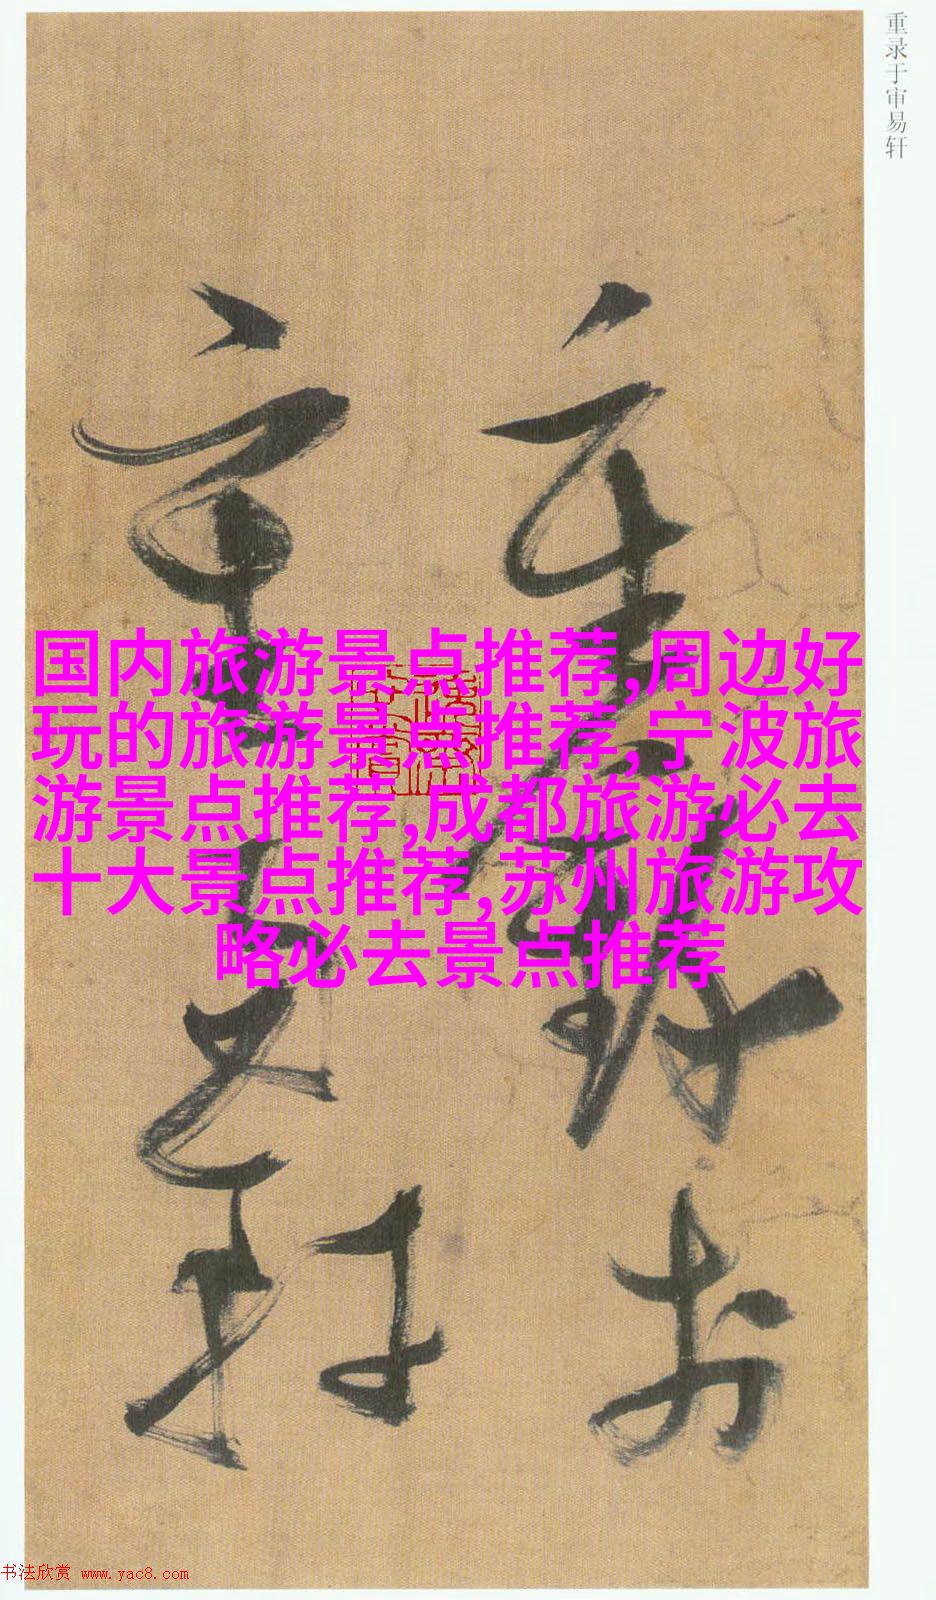 重录于审易轩
重录于
审易轩
国内旅游景点推荐,周边好
玩的旅游景点推荐,宁波旅
游景点推荐,成都旅游必去
十大景点推荐,苏州旅游攻
略必去景点推荐
书法欣赏 www.yac8.com